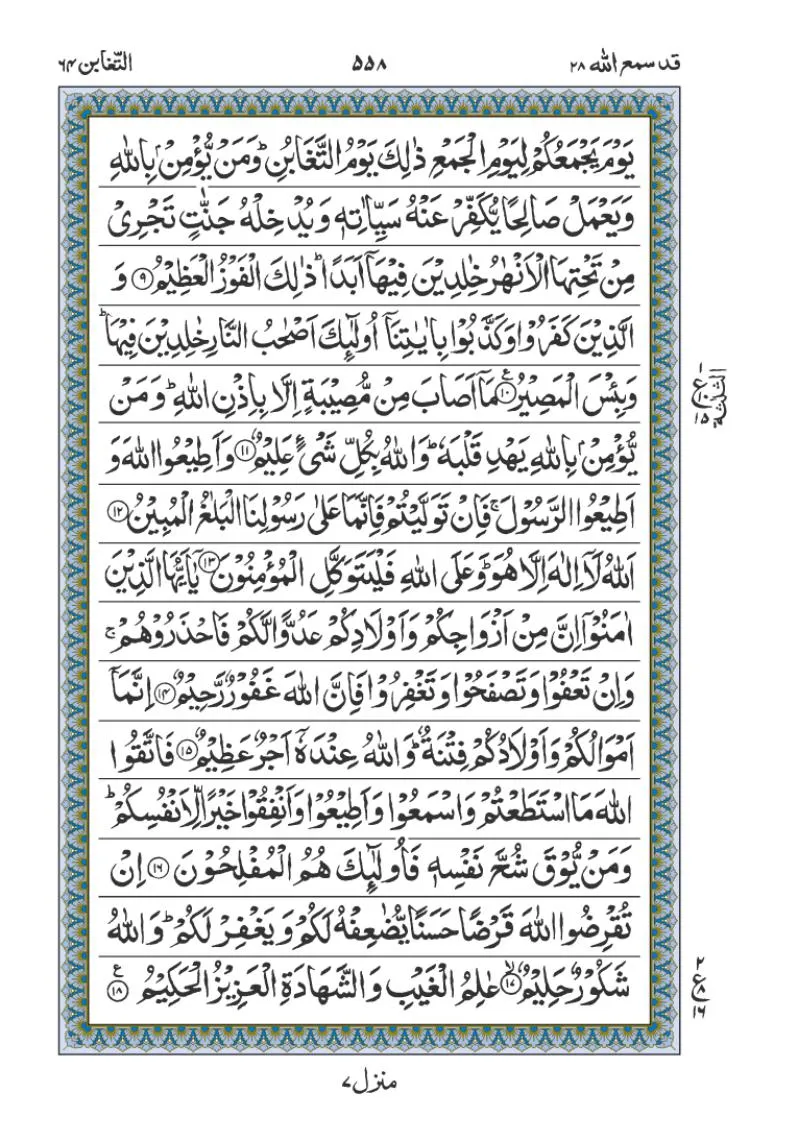 قد سمع الله ۲۸
۵۵۸
التّغابن ۶۴
یَوْمَ یَجْمَعُكُمْ لِیَوْمِ الْجَمْعِ ذٰلِكَ یَوْمُ التَّغَابُنِ ؕ وَ مَنْ یُّؤْمِنْۢ بِاللّٰهِ
وَ یَعْمَلْ صَالِحًا یُّكَفِّرْ عَنْهُ سَیِّاٰتِهٖ وَ یُدْخِلْهُ جَنّٰتٍ تَجْرِیْ
مِنْ تَحْتِهَا الْاَنْهٰرُ خٰلِدِیْنَ فِیْهَاۤ اَبَدًا ؕ ذٰلِكَ الْفَوْزُ الْعَظِیْمُ ۹ وَ
الَّذِیْنَ كَفَرُوْا وَ كَذَّبُوْا بِاٰیٰتِنَاۤ اُولٰٓىِٕكَ اَصْحٰبُ النَّارِ خٰلِدِیْنَ فِیْهَا ؕ
وَ بِئْسَ الْمَصِیْرُ ۱۰ ع مَاۤ اَصَابَ مِنْ مُّصِیْبَةٍ اِلَّا بِاِذْنِ اللّٰهِ ؕ وَ مَنْ
یُّؤْمِنْۢ بِاللّٰهِ یَهْدِ قَلْبَهٗ ؕ وَ اللّٰهُ بِكُلِّ شَیْءٍ عَلِیْمٌ ۱۱ وَ اَطِیْعُوا اللّٰهَ وَ
اَطِیْعُوا الرَّسُوْلَ ۚ فَاِنْ تَوَلَّیْتُمْ فَاِنَّمَا عَلٰى رَسُوْلِنَا الْبَلٰغُ الْمُبِیْنُ ۱۲
اَللّٰهُ لَاۤ اِلٰهَ اِلَّا هُوَ ؕ وَ عَلَى اللّٰهِ فَلْیَتَوَكَّلِ الْمُؤْمِنُوْنَ ۱۳ یٰۤاَیُّهَا الَّذِیْنَ
اٰمَنُوْۤا اِنَّ مِنْ اَزْوَاجِكُمْ وَ اَوْلَادِكُمْ عَدُوًّا لَّكُمْ فَاحْذَرُوْهُمْ ۚ
وَ اِنْ تَعْفُوْا وَ تَصْفَحُوْا وَ تَغْفِرُوْا فَاِنَّ اللّٰهَ غَفُوْرٌ رَّحِیْمٌ ۱۴ اِنَّمَاۤ
اَمْوَالُكُمْ وَ اَوْلَادُكُمْ فِتْنَةٌ ؕ وَ اللّٰهُ عِنْدَهٗۤ اَجْرٌ عَظِیْمٌ ۱۵ فَاتَّقُوا
اللّٰهَ مَا اسْتَطَعْتُمْ وَ اسْمَعُوْا وَ اَطِیْعُوْا وَ اَنْفِقُوْا خَیْرًا لِّاَنْفُسِكُمْ ؕ
وَ مَنْ یُّوْقَ شُحَّ نَفْسِهٖ فَاُولٰٓىِٕكَ هُمُ الْمُفْلِحُوْنَ ۱۶ اِنْ
تُقْرِضُوا اللّٰهَ قَرْضًا حَسَنًا یُّضٰعِفْهُ لَكُمْ وَ یَغْفِرْ لَكُمْ ؕ وَ اللّٰهُ
شَكُوْرٌ حَلِیْمٌ ۱۷ ۙ عٰلِمُ الْغَیْبِ وَ الشَّهَادَةِ الْعَزِیْزُ الْحَكِیْمُ ۱۸ ع
۱
ع ۱۰
۱۵
الثلثة
۲
ع ۸
۱۶
منزل ۷